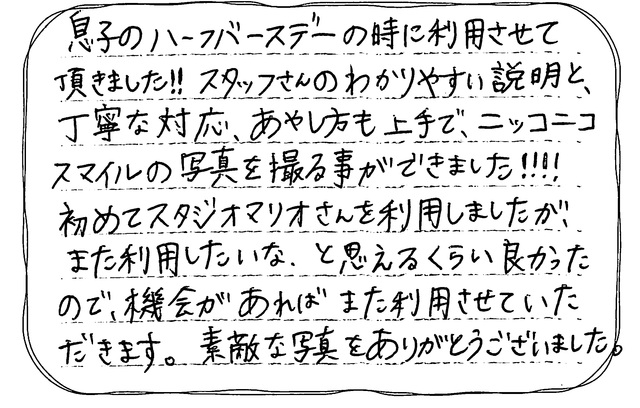 息子のハーフバースデーの時に利用させて
頂きました!! スタッフさんのわかりやすい説明と、
丁寧な対応、あやし方も上手で、ニッコニコ
スマイルの写真を撮る事ができました!!!!
初めてスタジオマリオさんを利用しましたが、
また利用したいな、と思えるくらい良かった
ので、機会があればまた利用させていた
だきます。素敵な写真をありがとうございました。